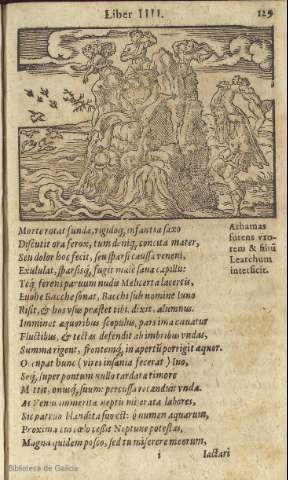 Liber IIII.
125
Morte rotat fundæ, rigidoq; infantia saxo
Discutit ora ferox, tum deniq; concita mater,
Seu dolor hoc fecit, seu sparsi caussa veneni,
Exululat, sparsisq; fugit male sana capillis:
Teq; ferens paruum nudis Melicerta lacertis,
Euohe Bacche sonat, Bacchi sub nomine Iuno
Risit, & hos vsus præstet tibi, dixit, alumnus.
Imminet æquoribus scopulus, pars ima cauatur
Fluctibus, & tectas defendit ab imbribus vndas,
Summa riget, frontemq; in apertū porrigit æquor.
Occupat hunc (vires insania fecerat) Ino,
Seq; super pontum nullo tardata timore
Mittit, onusq; suum: percussa recanduit vnda.
At Venus immeritæ neptis miserata labores,
Sic patruo blandita suo est: ô numen aquarum,
Proxima cui cælo cessit Neptune potestas,
Magna quidem posco, sed tu miserere meorum,
i
Iactari
Athamas
furens vxo-
rem & filiū
Learchum
interficit.
Biblioteca de Galicia